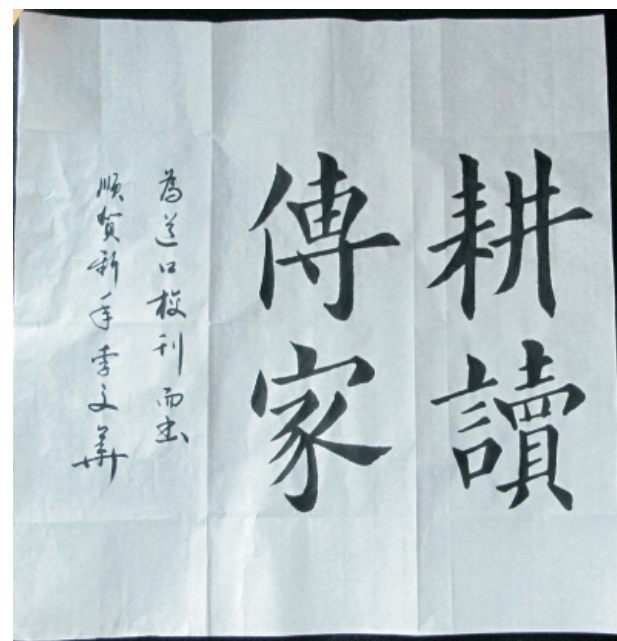 耕讀
傳家
為道口校刊而書
順賀新年李文華